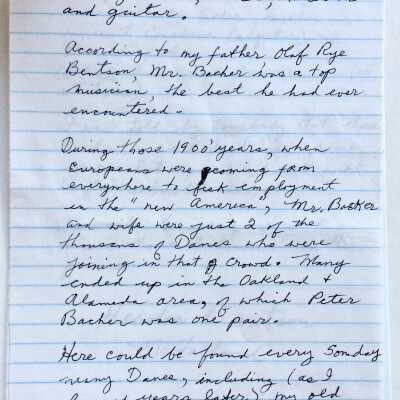 and guitar.
According to my father, Olaf Rye
Bentson, Mr. Bacher was a top
musician, the best he had ever
encountered.
During those 1900 years, when
Europeans were coming from
everywhere to seek employment
in the "new America", Mr. Bacher
and wife were just 2 of the
thousans of Danes who were
joining in that crowd. Many
ended up in the Oakland +
Alameda area, of which Peter
Bacher was one pair.
Here could be found every Sonday
many Danes, including (as I
years later) my old